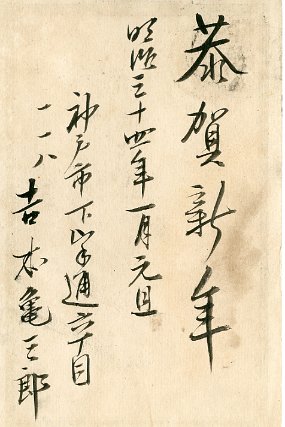 恭賀新年
明治三十四年一月元旦
神戸市下山手通六丁目
一一八 吉本亀三郎